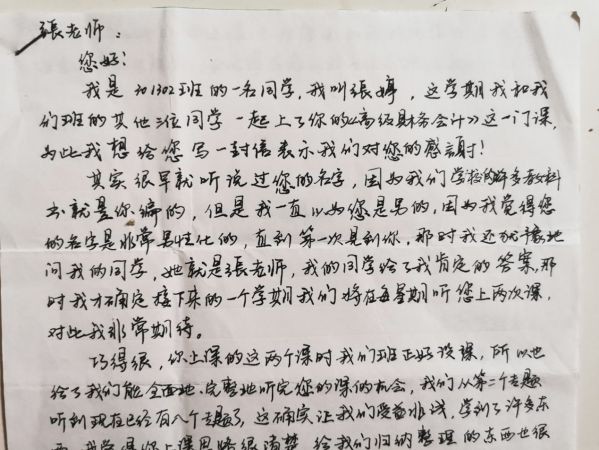 張老师：
您好！
我是201302班的一名同学，我叫張婷，这学期我和我
们班的其他三位同学一起上了你的《高级财务会计》这一门课，
为此我想给您写一封信表示我们对您的感謝！
其实很早就听说过您的名字，因为我们学校的许多教科
书就是你编的，但是我一直以为您是男的，因为我觉得您
的名字是非常男性化的，直到第一次见到你，那时我还犹豫地
问我的同学，她就是張老师，我的同学给了我肯定的答案，那
时我才确定接下来的一个学期我们将在每星期听您上两次课，
对此我非常期待。
巧得很，你上课的这两个课时我们班正好没课，所以也
给了我们能全面地、完整地听完您的课的机会，我们从第二个专题
听到现在已经有八个专题了，这确实让我们受益非浅，学到了许多东
西，我觉得你上课思路很清楚，给我们归纳整理的东西也很